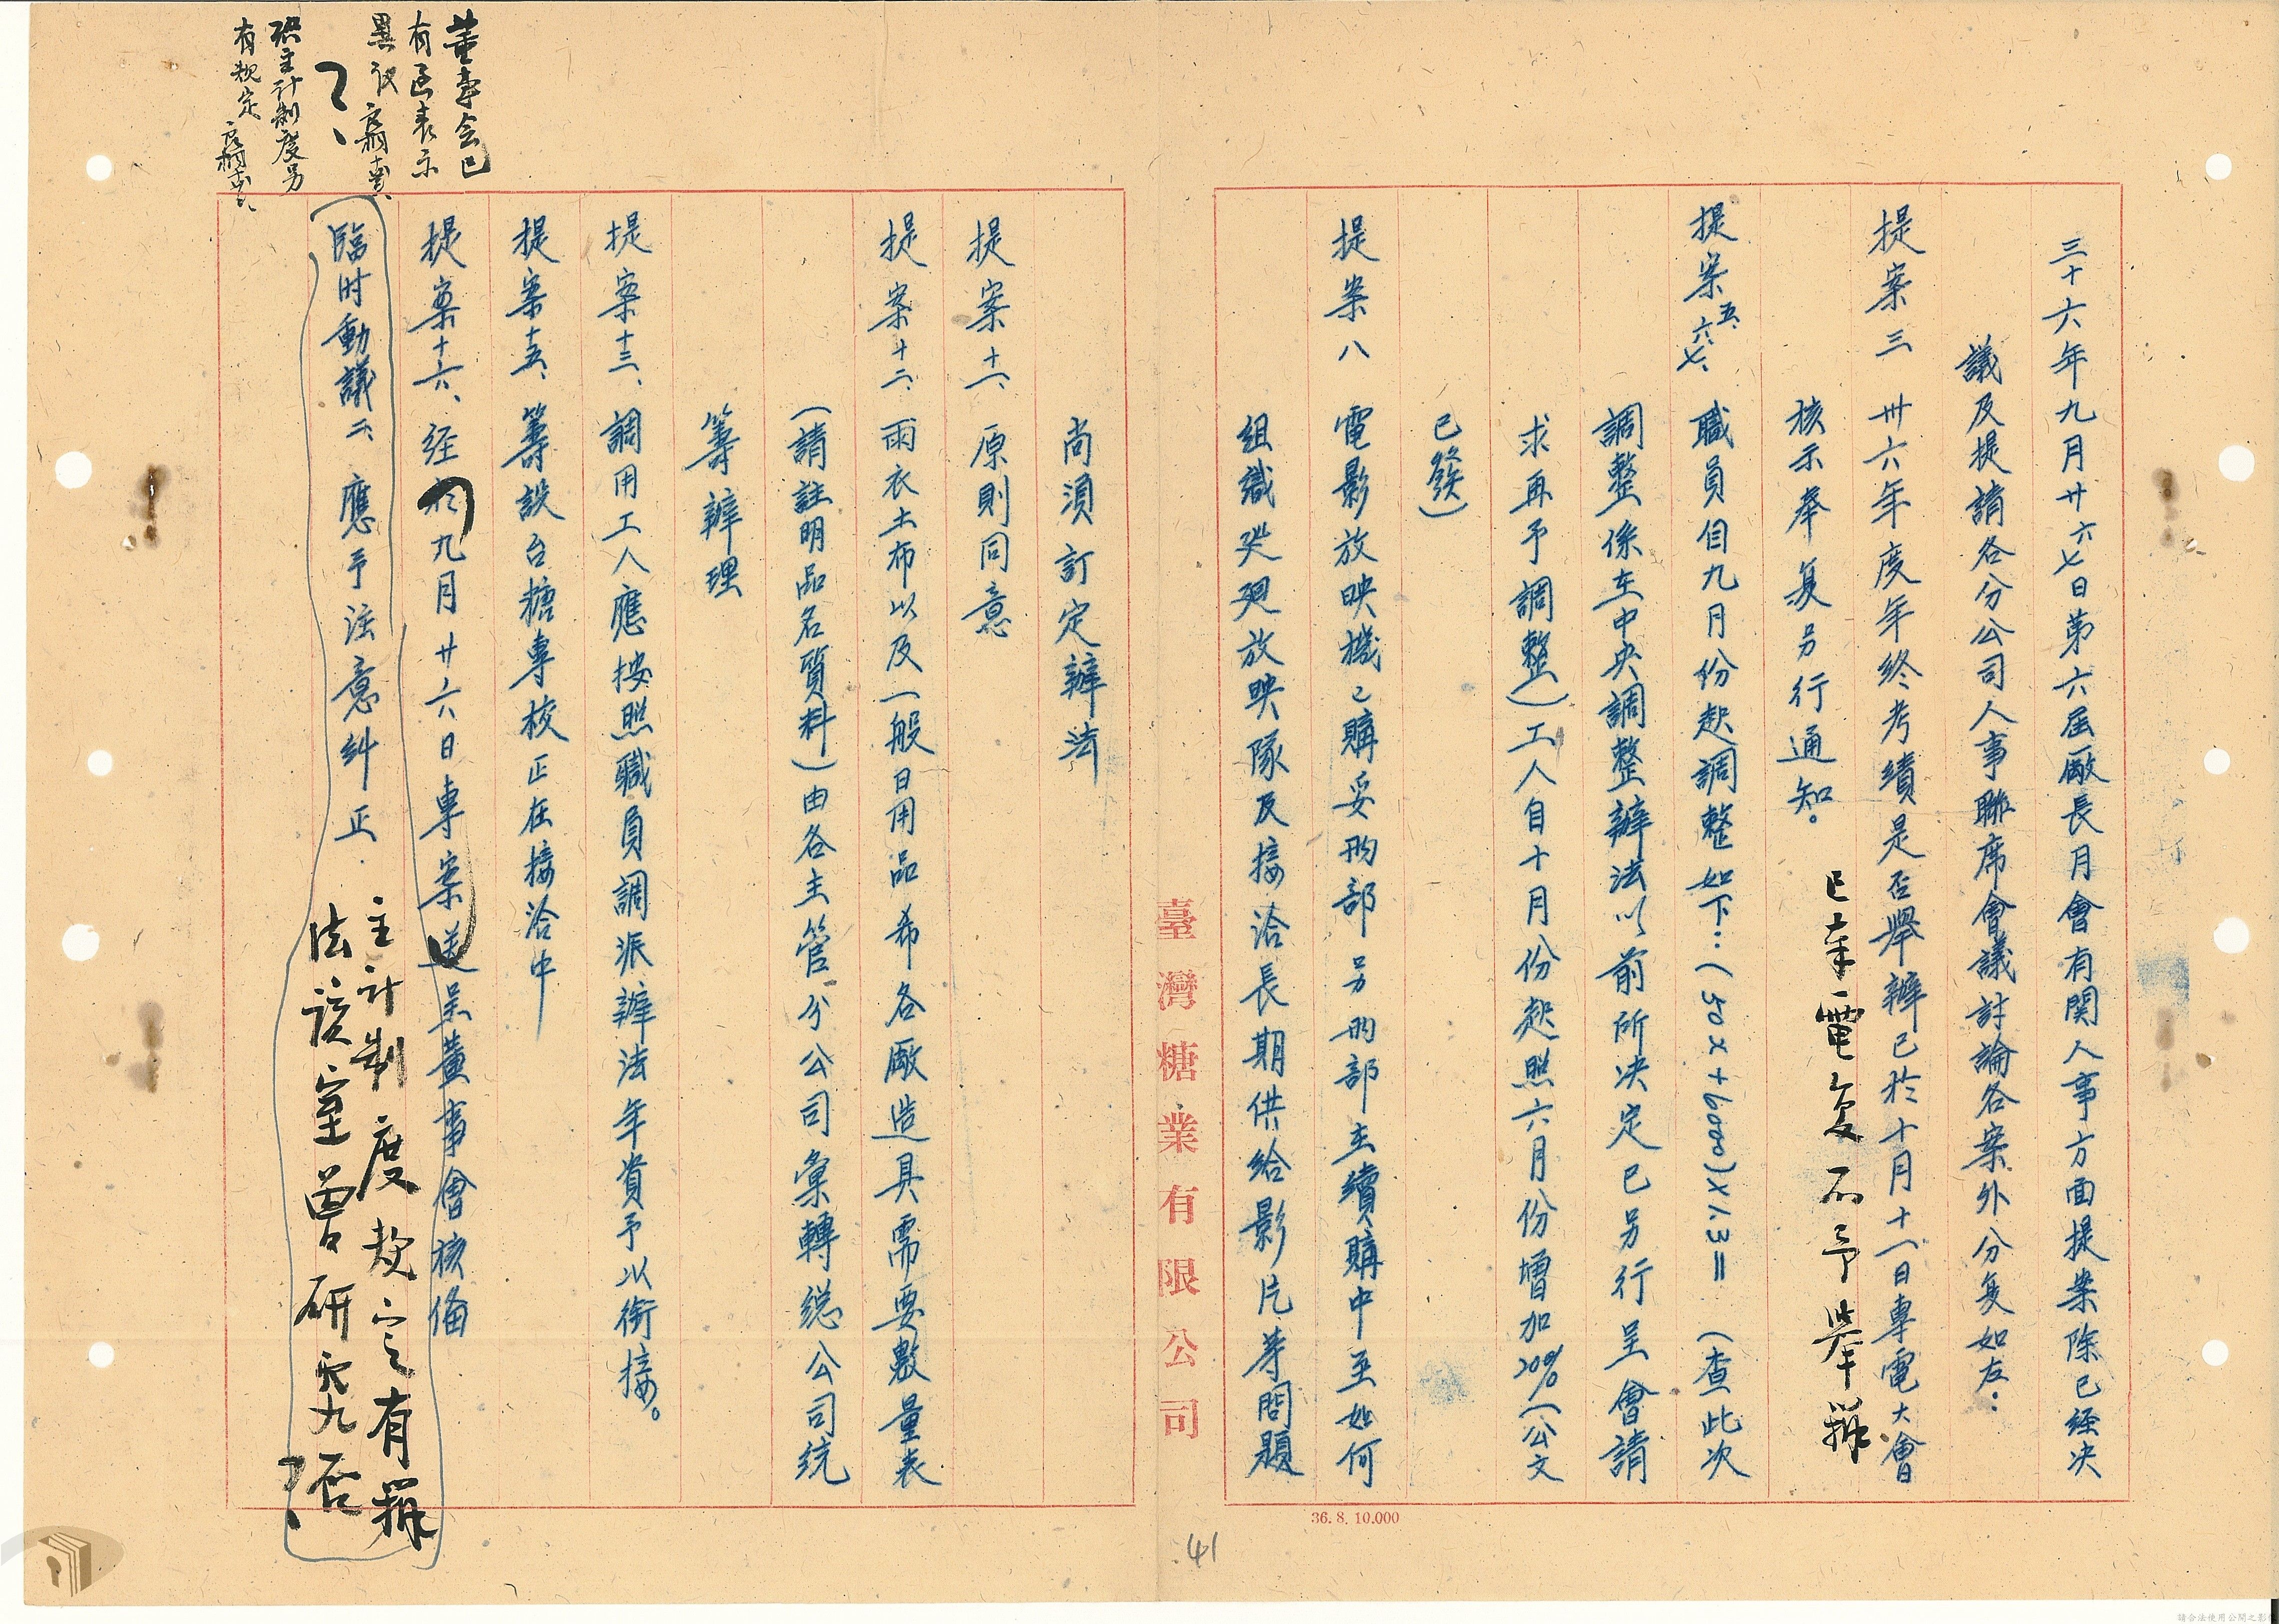 三十六年九月廿六七日第六屆厰長月會有関人事方面提案除已経决
議及提請各分公司人事聯席會議討論各案外分复如左：
提案三　卅六年度年終考績是否舉辦已於十月十一日專電大會
核示奉复另行通知。
已奉電复不予举辦
提案五、六、七、職員自九月份起調整如下：（50x+6000）x1.3=（查此次
調整係在中央調整辦法以前所决定已另行呈會請
求再予調整）工人自十月份起照六月份增加20%（公文
已發）
提案八　電影放映機已購妥
部另
部主續購中至如何
組織
放映隊及接洽長期供給影片等問題
臺灣糖業有限公司
36. 8. 10.000
41
尚須訂定辦法
提案十一、原則同意
提案十二、雨衣土布以及一般日用品希各厰造具需要數量表
（請註明品名質料）由各主管分公司彙轉総公司统
籌辦理
提案十三、調用工人應按照職員調派辦法年資予以銜接。
提案十五、籌設台糖專校正在接洽中
提案十六、経於九月廿六日專案送呈董事會核俻
臨时動議二、應予注意糾正.
主計制度規定有辦
法該室曾研究否
？
董事会已
有函表示
異议
？
主計制度另
有規定
請合法使用公開之影像